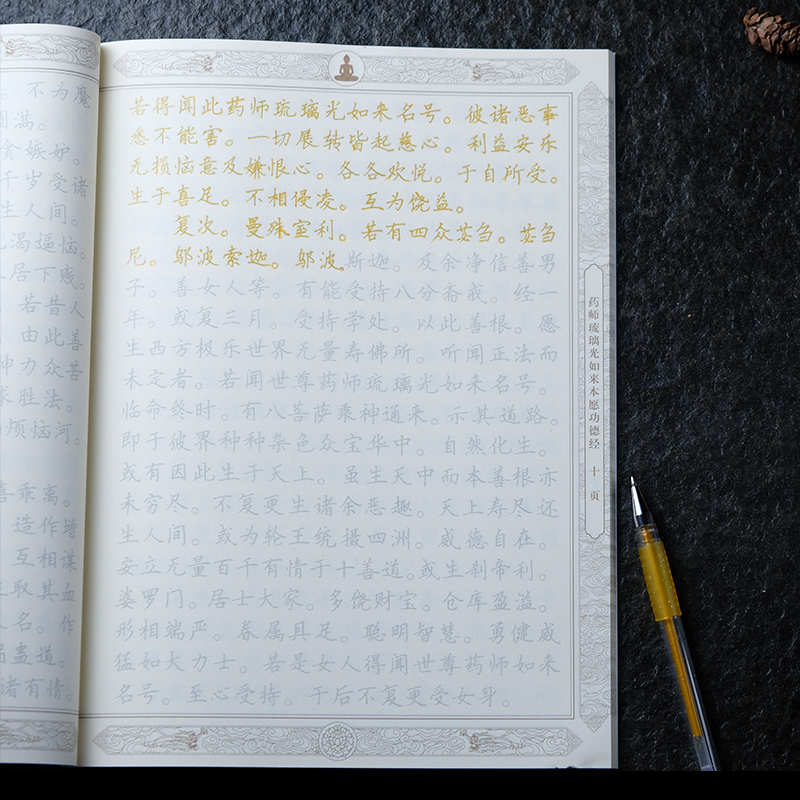 。不为魔
圆满。
贪嫉妒。
千岁受诸
生人间。
饥渴逼恼。
人居下贱。
若昔人
由此善
神力众苦
求胜法。
烦恼河。
喜乖离。
造作增
互相谋
取其血
人名。作
蛊道。
诸有情。
若得闻此药师琉璃光如来名号。彼诸恶事
悉不能害。一切展转皆起慈心。利益安乐
无损恼意及嫌恨心。各各欢悦。于自所受。
生于喜足。不相侵凌。互为饶益。
复次。曼殊室利。若有四众苾刍。苾刍
尼。邬波索迦。邬波斯迦。及余净信善男
子。善女人等。有能受持八分斋戒。经一
年。或复三月。受持学处。以此善根。愿
生西方极乐世界无量寿佛所。听闻正法而
未定者。若闻世尊药师琉璃光如来名号。
临命终时。有八菩萨乘神通来。示其道路。
即于彼界种种杂色众宝华中。自然化生。
或有因此生于天上。虽生天中而本善根亦
未穷尽。不复更生诸余恶趣。天上寿尽还
生人间。或为轮王统摄四洲。威德自在。
安立无量百千有情于十善道。或生刹帝利。
婆罗门。居士大家。多饶财宝。仓库盈溢。
形相端严。眷属具足。聪明智慧。勇健威
猛如大力士。若是女人得闻世尊药师如来
名号。至心受持。于后不复更受女身。
药师琉璃光如来本愿功德经 十页